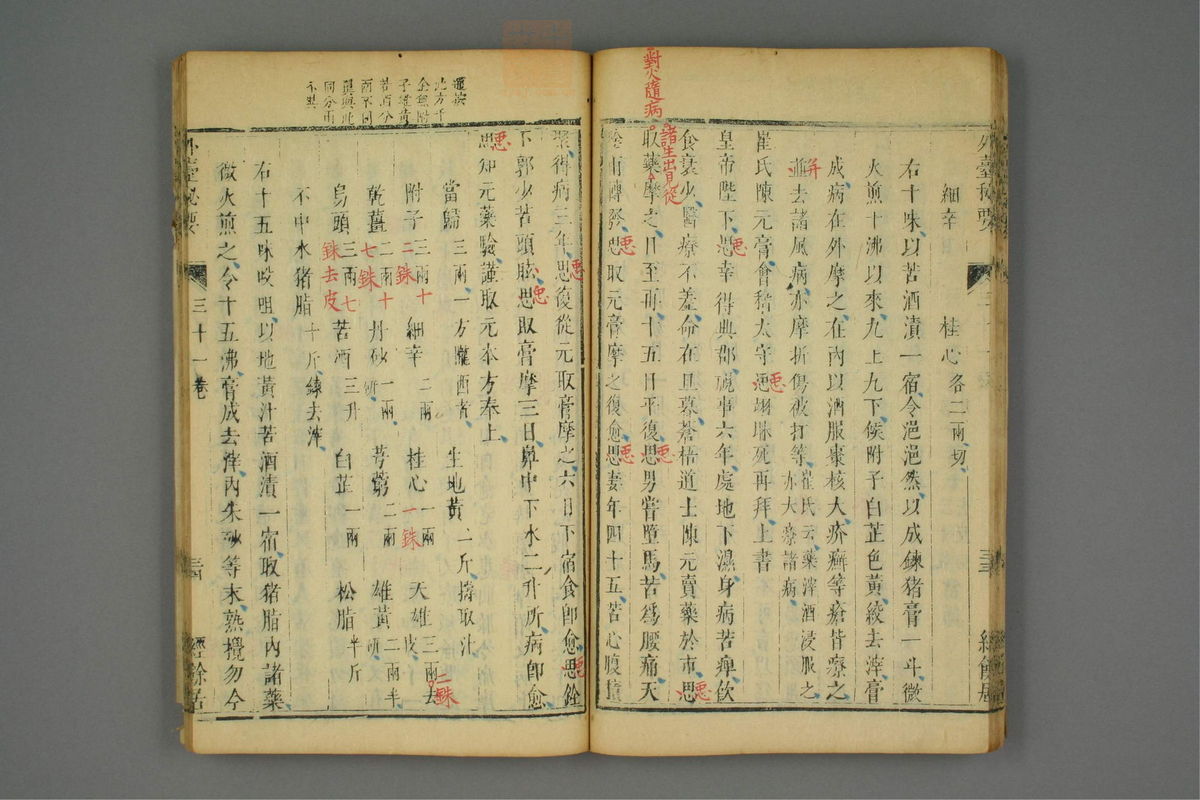 細辛
桂心各二兩切
右十味以苦酒漬一宿令浥浥然以成鍊猪膏一斗微
火煎十沸以來九上九下候附子白芷色黃絞去滓膏
成病在外摩之在內以酒服棗核大疥癬等瘡皆療之
并去諸風病亦摩折傷被打等崔氏云藥滓酒浸服之亦大療諸病
崔氏陳元膏會稽太守思翊昧死再拜上書
皇帝陛下思幸得典郡視事六年處地下濕身病苦痺飲
食衰少醫療不差命在旦暮蒼梧道士陳元賣藥於市思
取藥摩之日至再十五日平復思男嘗墮馬苦為腰痛天
陰雨轉發思取元膏摩之復愈思妻年四十五苦心腹
對火隨病
諸生出見從
聚得病三年思復從元取膏摩之六日下宿食即愈思銓
下郭少苦頭眩思取膏摩三日鼻中下水二升所病即愈
思知元藥驗謹取元本方奉上
當歸三兩一方
生地黃二斤擣取汁
附子三兩十二銖
細辛二兩
桂心一兩一銖
天雄三兩去皮三銖
乾薑二兩十七銖
丹砂一兩研
芎藭二兩
雄黃二兩半研
烏頭三兩七銖去皮
苦酒三升
白芷一兩
松脂半斤
不中水猪脂十斤鍊去滓
右十五味㕮咀以地黃汁苦酒漬一宿取猪脂內諸藥
微火煎之令十五沸膏成去滓內朱砂等末熟攪勿令
外臺秘要
三十一卷
經餘居